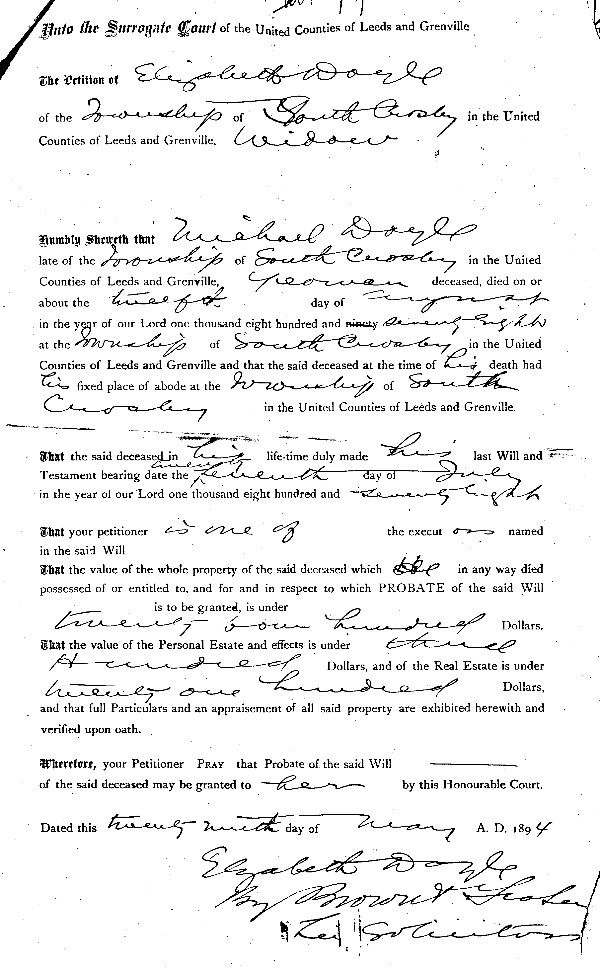 Unto the Surrogate Court of the United Counties of Leeds and Grenville
The Petition of Elizabeth Doyle
of the Township of South Crosby in the United
Counties of Leeds and Grenville, Widow
Humbly Sheweth that Michael Doyle
late of the Township of South Crosby in the United
Counties of Leeds and Grenville, Yeoman deceased, died on or
about the twelfth day of August
in the year of our Lord one thousand eight hundred and ninety seventy eight
at the Township of South Crosby in the United
Counties of Leeds and Grenville and that the said deceased at the time of his death had
his fixed place of abode at the Township of South
Crosby in the United Counties of Leeds and Grenville.
That the said deceased in his life-time duly made his last Will and
Testament bearing date the twenty seventh day of July
in the year of our Lord one thousand eight hundred and seventy eight
That your petitioner is one of the execut ors named
in the said Will
That the value of the whole property of the said deceased which he in any way died
possessed of or entitled to, and for and in respect to which PROBATE of the said Will
is to be granted, is under
twenty four hundred Dollars.
That the value of the Personal Estate and effects is under three
Hundred Dollars, and of the Real Estate is under
twenty one hundred Dollars,
and that full Particulars and an appraisement of all said property are exhibited herewith and
verified upon oath.
Wherefore, your Petitioner PRAY that Probate of the said Will
of the said deceased may be granted to her by this Honourable Court.
Dated this twenty ninth day of May A. D. 1894
Elizabeth Doyle
By Brown & Fraser
her Solicitors